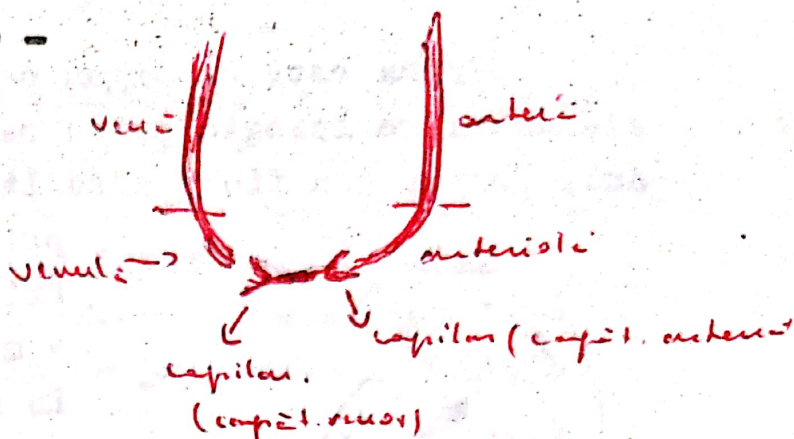 venă
arteră
venulă
arteriolă
capilar (capăt. arterial
capilar.
(capăt. venos)